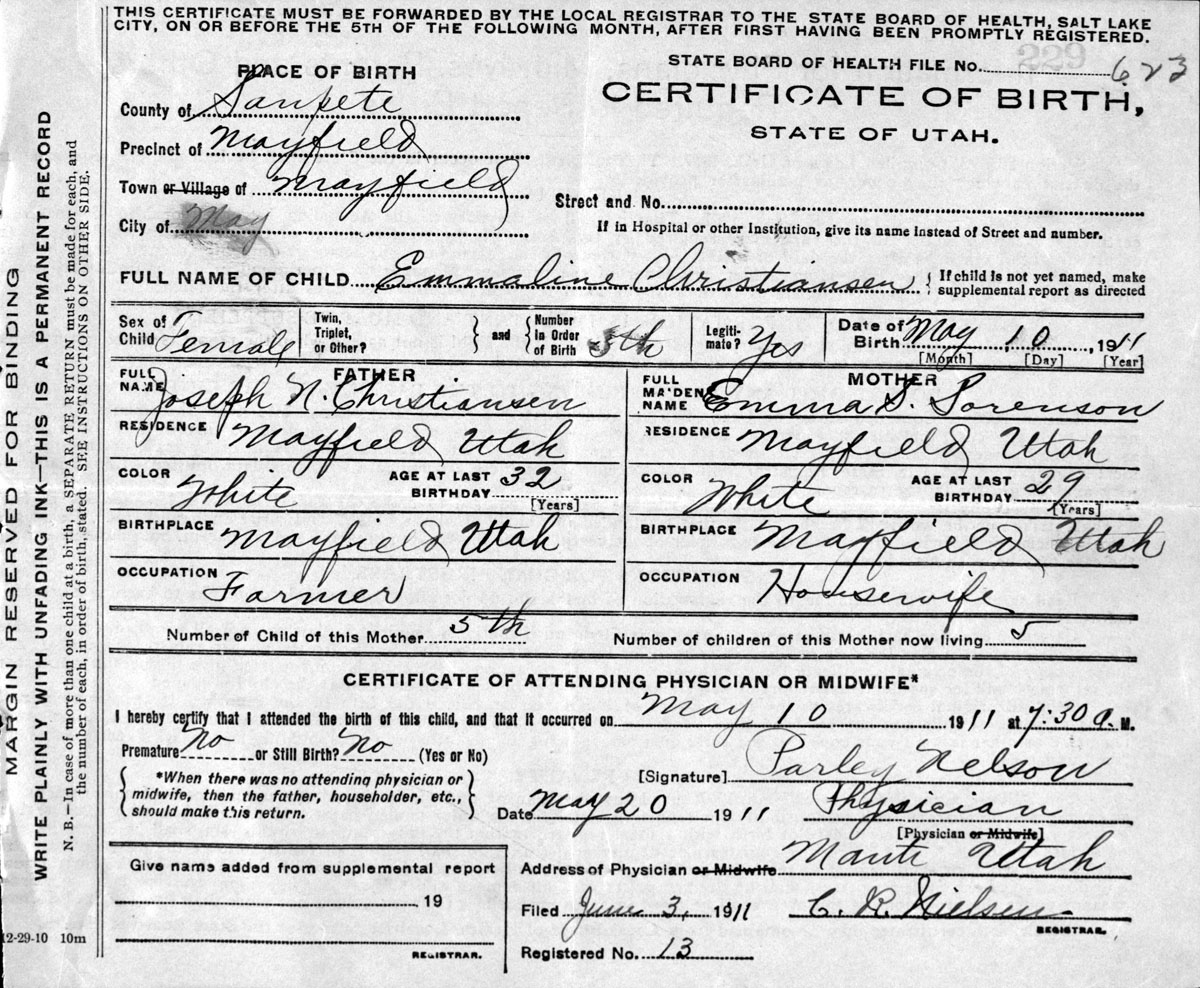 THIS CERTIFICATE MUST BE FORWARDED BY THE LOCAL REGISTRAR TO THE STATE BOARD OF HEALTH, SALT LAKE
CITY, ON OR BEFORE THE 5TH OF THE FOLLOWING MONTH, AFTER FIRST HAVING BEEN PROMPTLY REGISTERED.
229
PLACE OF BIRTH
STATE BOARD OF HEALTH FILE No. 623
CERTIFICATE OF BIRTH,
STATE OF UTAH.
County of Sanpete
Precinct of Mayfield
Town or Village of Mayfield
City of May
Street and No.
If in Hospital or other Institution, give its name instead of Street and number.
FULL NAME OF CHILD Emmaline Christiansen { If child is not yet named, make
supplemental report as directed
Sex of Child Female
Twin, Triplet, or Other? } and { Number In Order of Birth 5th
Legiti-mate? Yes
Date of Birth May 10, 1911
[Month] [Day] [Year]
FATHER
FULL NAME Joseph N. Christiansen
RESIDENCE Mayfield Utah
COLOR White AGE AT LAST BIRTHDAY 32
[Years]
BIRTHPLACE Mayfield Utah
OCCUPATION Farmer
MOTHER
FULL MAIDEN NAME Emma S. Sorenson
RESIDENCE Mayfield Utah
COLOR White AGE AT LAST BIRTHDAY 29
[Years]
BIRTHPLACE Mayfield Utah
OCCUPATION Housewife
Number of Child of this Mother 5th Number of children of this Mother now living 5
CERTIFICATE OF ATTENDING PHYSICIAN OR MIDWIFE*
I hereby certify that I attended the birth of this child, and that it occurred on May 10 1911 at 7:30 a. M.
Premature No or Still Birth? No (Yes or No)
{ *When there was no attending physician or
midwife, then the father, householder, etc.,
should make this return. }
[Signature] Parley Nelson
Date May 20 1911 Physician
[Physician or Midwife]
Address of Physician or Midwife Manti Utah
Filed June 3, 1911 C. R. Nielsen
REGISTRAR.
Registered No. 13
Give name added from supplemental report
19
REGISTRAR.
12-29-10 10m
MARGIN RESERVED FOR BINDING
WRITE PLAINLY WITH UNFADING INK—THIS IS A PERMANENT RECORD
N. B.—In case of more than one child at a birth, a SEPARATE RETURN must be made for each, and
the number of each, in order of birth, stated. SEE INSTRUCTIONS ON OTHER SIDE.